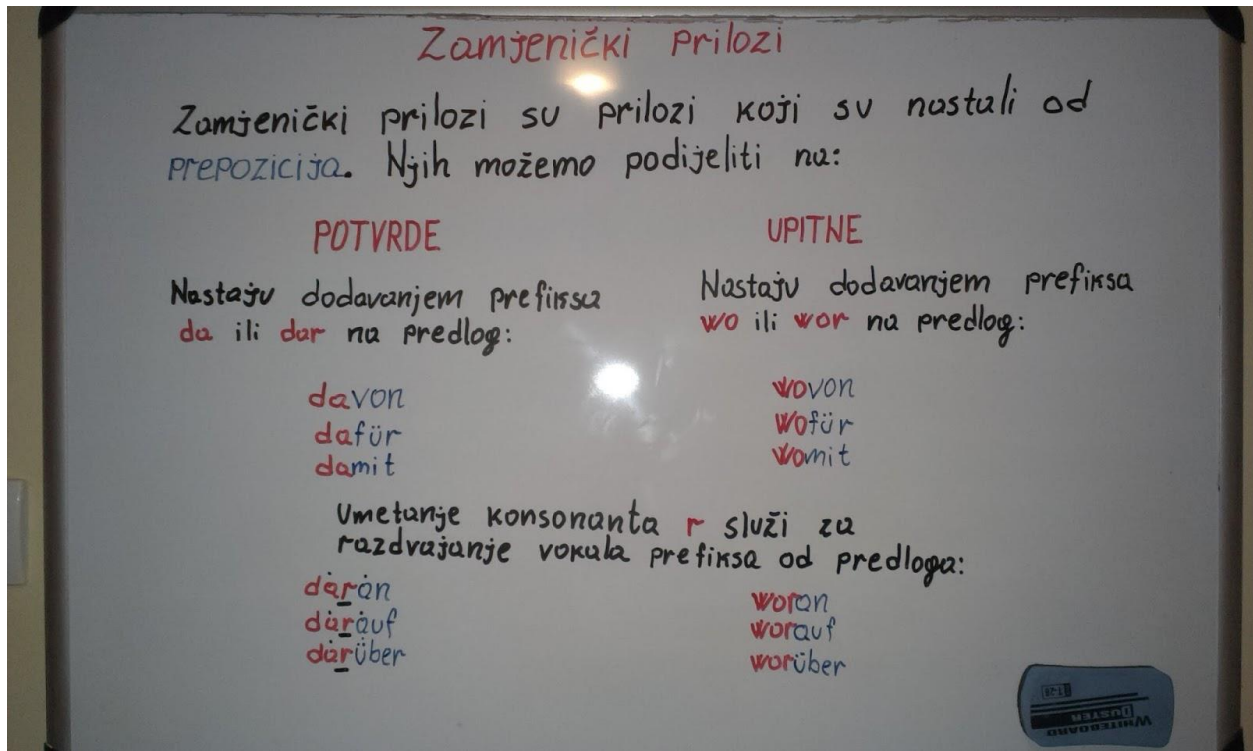 Zamjenički prilozi
Zamjenički prilozi su prilozi koji su nastali od
prepozicija. Njih možemo podijeliti na:
POTVRDE
Nastaju dodavanjem prefiksa
da ili dar na predlog:
davon
dafür
damit
UPITNE
Nastaju dodavanjem prefiksa
wo ili wor na predlog:
wovon
wofür
womit
Umetanje konsonanta r služi za
razdvajanje vokala prefiksa od predloga:
daran
darauf
darüber
woran
worauf
worüber
WHITEBOARD
DUSTER